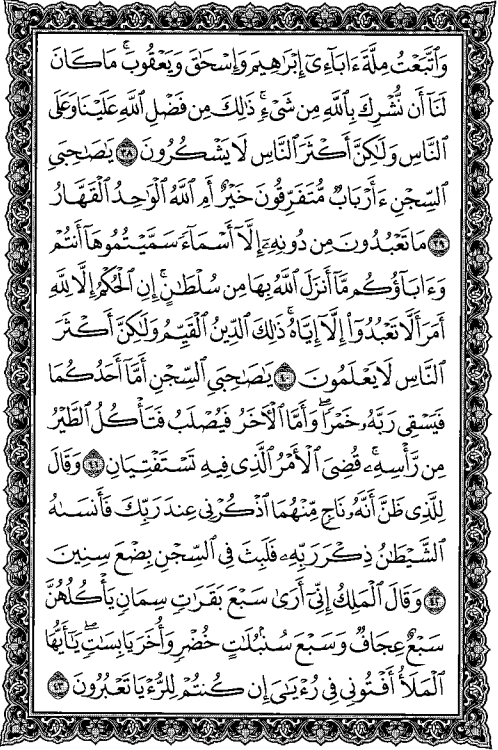 وَٱتَّبَعْتُ مِلَّةَ ءَابَآءِىٓ إِبْرَٰهِيمَ وَإِسْحَٰقَ وَيَعْقُوبَ ۚ مَا كَانَ
لَنَآ أَن نُّشْرِكَ بِٱللَّهِ مِن شَىْءٍ ۚ ذَٰلِكَ مِن فَضْلِ ٱللَّهِ عَلَيْنَا وَعَلَى
ٱلنَّاسِ وَلَٰكِنَّ أَكْثَرَ ٱلنَّاسِ لَا يَشْكُرُونَ ٣٨ يَٰصَٰحِبَىِ
ٱلسِّجْنِ ءَأَرْبَابٌ مُّتَفَرِّقُونَ خَيْرٌ أَمِ ٱللَّهُ ٱلْوَٰحِدُ ٱلْقَهَّارُ
٣٩ مَا تَعْبُدُونَ مِن دُونِهِۦٓ إِلَّآ أَسْمَآءً سَمَّيْتُمُوهَآ أَنتُمْ
وَءَابَآؤُكُم مَّآ أَنزَلَ ٱللَّهُ بِهَا مِن سُلْطَٰنٍ ۚ إِنِ ٱلْحُكْمُ إِلَّا لِلَّهِ
أَمَرَ أَلَّا تَعْبُدُوٓا۟ إِلَّآ إِيَّاهُ ۚ ذَٰلِكَ ٱلدِّينُ ٱلْقَيِّمُ وَلَٰكِنَّ أَكْثَرَ
ٱلنَّاسِ لَا يَعْلَمُونَ ٤٠ يَٰصَٰحِبَىِ ٱلسِّجْنِ أَمَّآ أَحَدُكُمَا
فَيَسْقِى رَبَّهُۥ خَمْرًا ۖ وَأَمَّا ٱلْءَاخَرُ فَيُصْلَبُ فَتَأْكُلُ ٱلطَّيْرُ
مِن رَّأْسِهِۦ ۚ قُضِىَ ٱلْأَمْرُ ٱلَّذِى فِيهِ تَسْتَفْتِيَانِ ٤١ وَقَالَ
لِلَّذِى ظَنَّ أَنَّهُۥ نَاجٍ مِّنْهُمَا ٱذْكُرْنِى عِندَ رَبِّكَ فَأَنسَىٰهُ
ٱلشَّيْطَٰنُ ذِكْرَ رَبِّهِۦ فَلَبِثَ فِى ٱلسِّجْنِ بِضْعَ سِنِينَ
٤٢ وَقَالَ ٱلْمَلِكُ إِنِّىٓ أَرَىٰ سَبْعَ بَقَرَٰتٍ سِمَانٍ يَأْكُلُهُنَّ
سَبْعٌ عِجَافٌ وَسَبْعَ سُنۢبُلَٰتٍ خُضْرٍ وَأُخَرَ يَابِسَٰتٍ ۖ يَٰٓأَيُّهَا
ٱلْمَلَأُ أَفْتُونِى فِى رُءْيَٰىَ إِن كُنتُمْ لِلرُّءْيَا تَعْبُرُونَ ٤٣